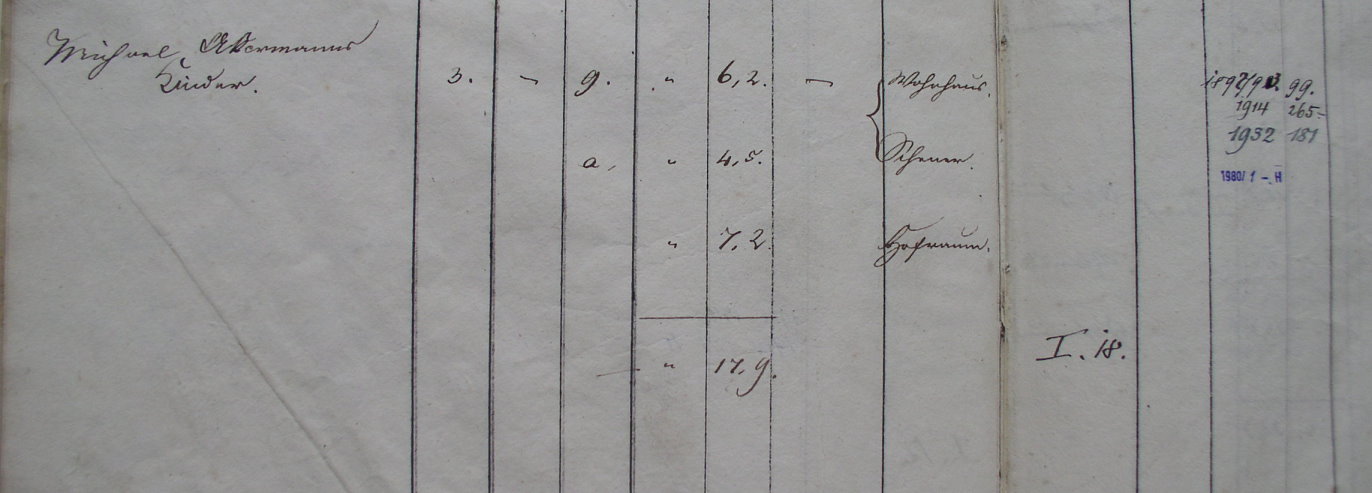 Michael Akermanns
Kinder. 3. — 9. . " 6,2. — Wohnhaus. 99.
1914 265.-
1932 181
a, " 4,5. Scheuer.
1980/1 - H
" 7,2. Hofraum.
I. 18.
" 17,9.